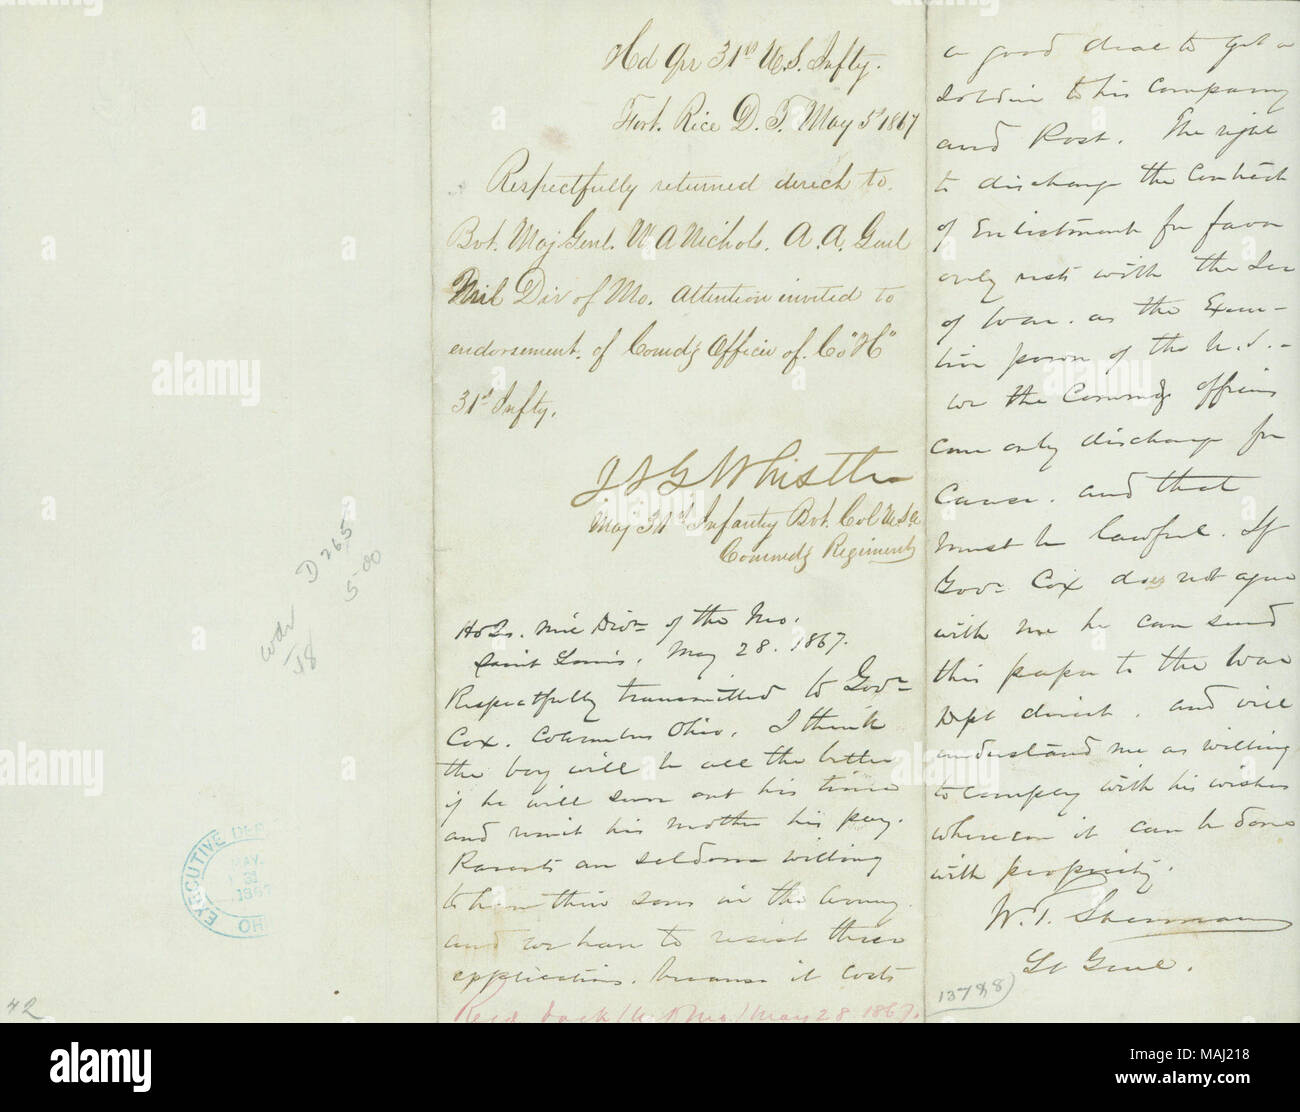 Hd Qrs 31st U.S. Infty.
Fort. Rice D. T. May 5th 1867
Respectfully returned direct to
Bvt. Maj Genl. W A Nichols. A. A. Genl
Mil Div of Mo. Attention invited to
endorsement. of Comdg Officer of. Co "H"
31st Infty.
J N G Whistler
Maj 31st Infantry Bvt. Col U.S.A
Commdg Regiment
Hd Qrs. Mil Divn of the Mo.
Saint Louis, May 28. 1867.
Respectfully transmitted to Govr
Cox. Columbus Ohio. I think
the boy will be all the better
if he will serve out his time
and remit his mother his pay.
Parents are seldom willing
to have their sons in the Army.
and we have to resist these
applications. because it costs
Recd back (M D Mo) May 28 1867.
a good deal to get a
soldier to his Company
and Post. The right
to discharge the Contract
of Enlistment for favor
only rests with the Sec
of War. as the Execu-
tive person of the U.S. -
we the Commdg officers
can only discharge for
Cause. and that
must be lawful. If
Govr Cox does not agree
with me he can send
this paper to the War
Dept direct. and will
understand me as willing
to comply with his wishes
whenever it can be done
with propriety.
W. T. Sherman
Lt Genl.
13788
D 265
5-00
18
EXECUTIVE DEP
MAY.
31
1867
OHI
42
alamy
a
alamy stock photo
Image ID: MAJ218
www.alamy.com